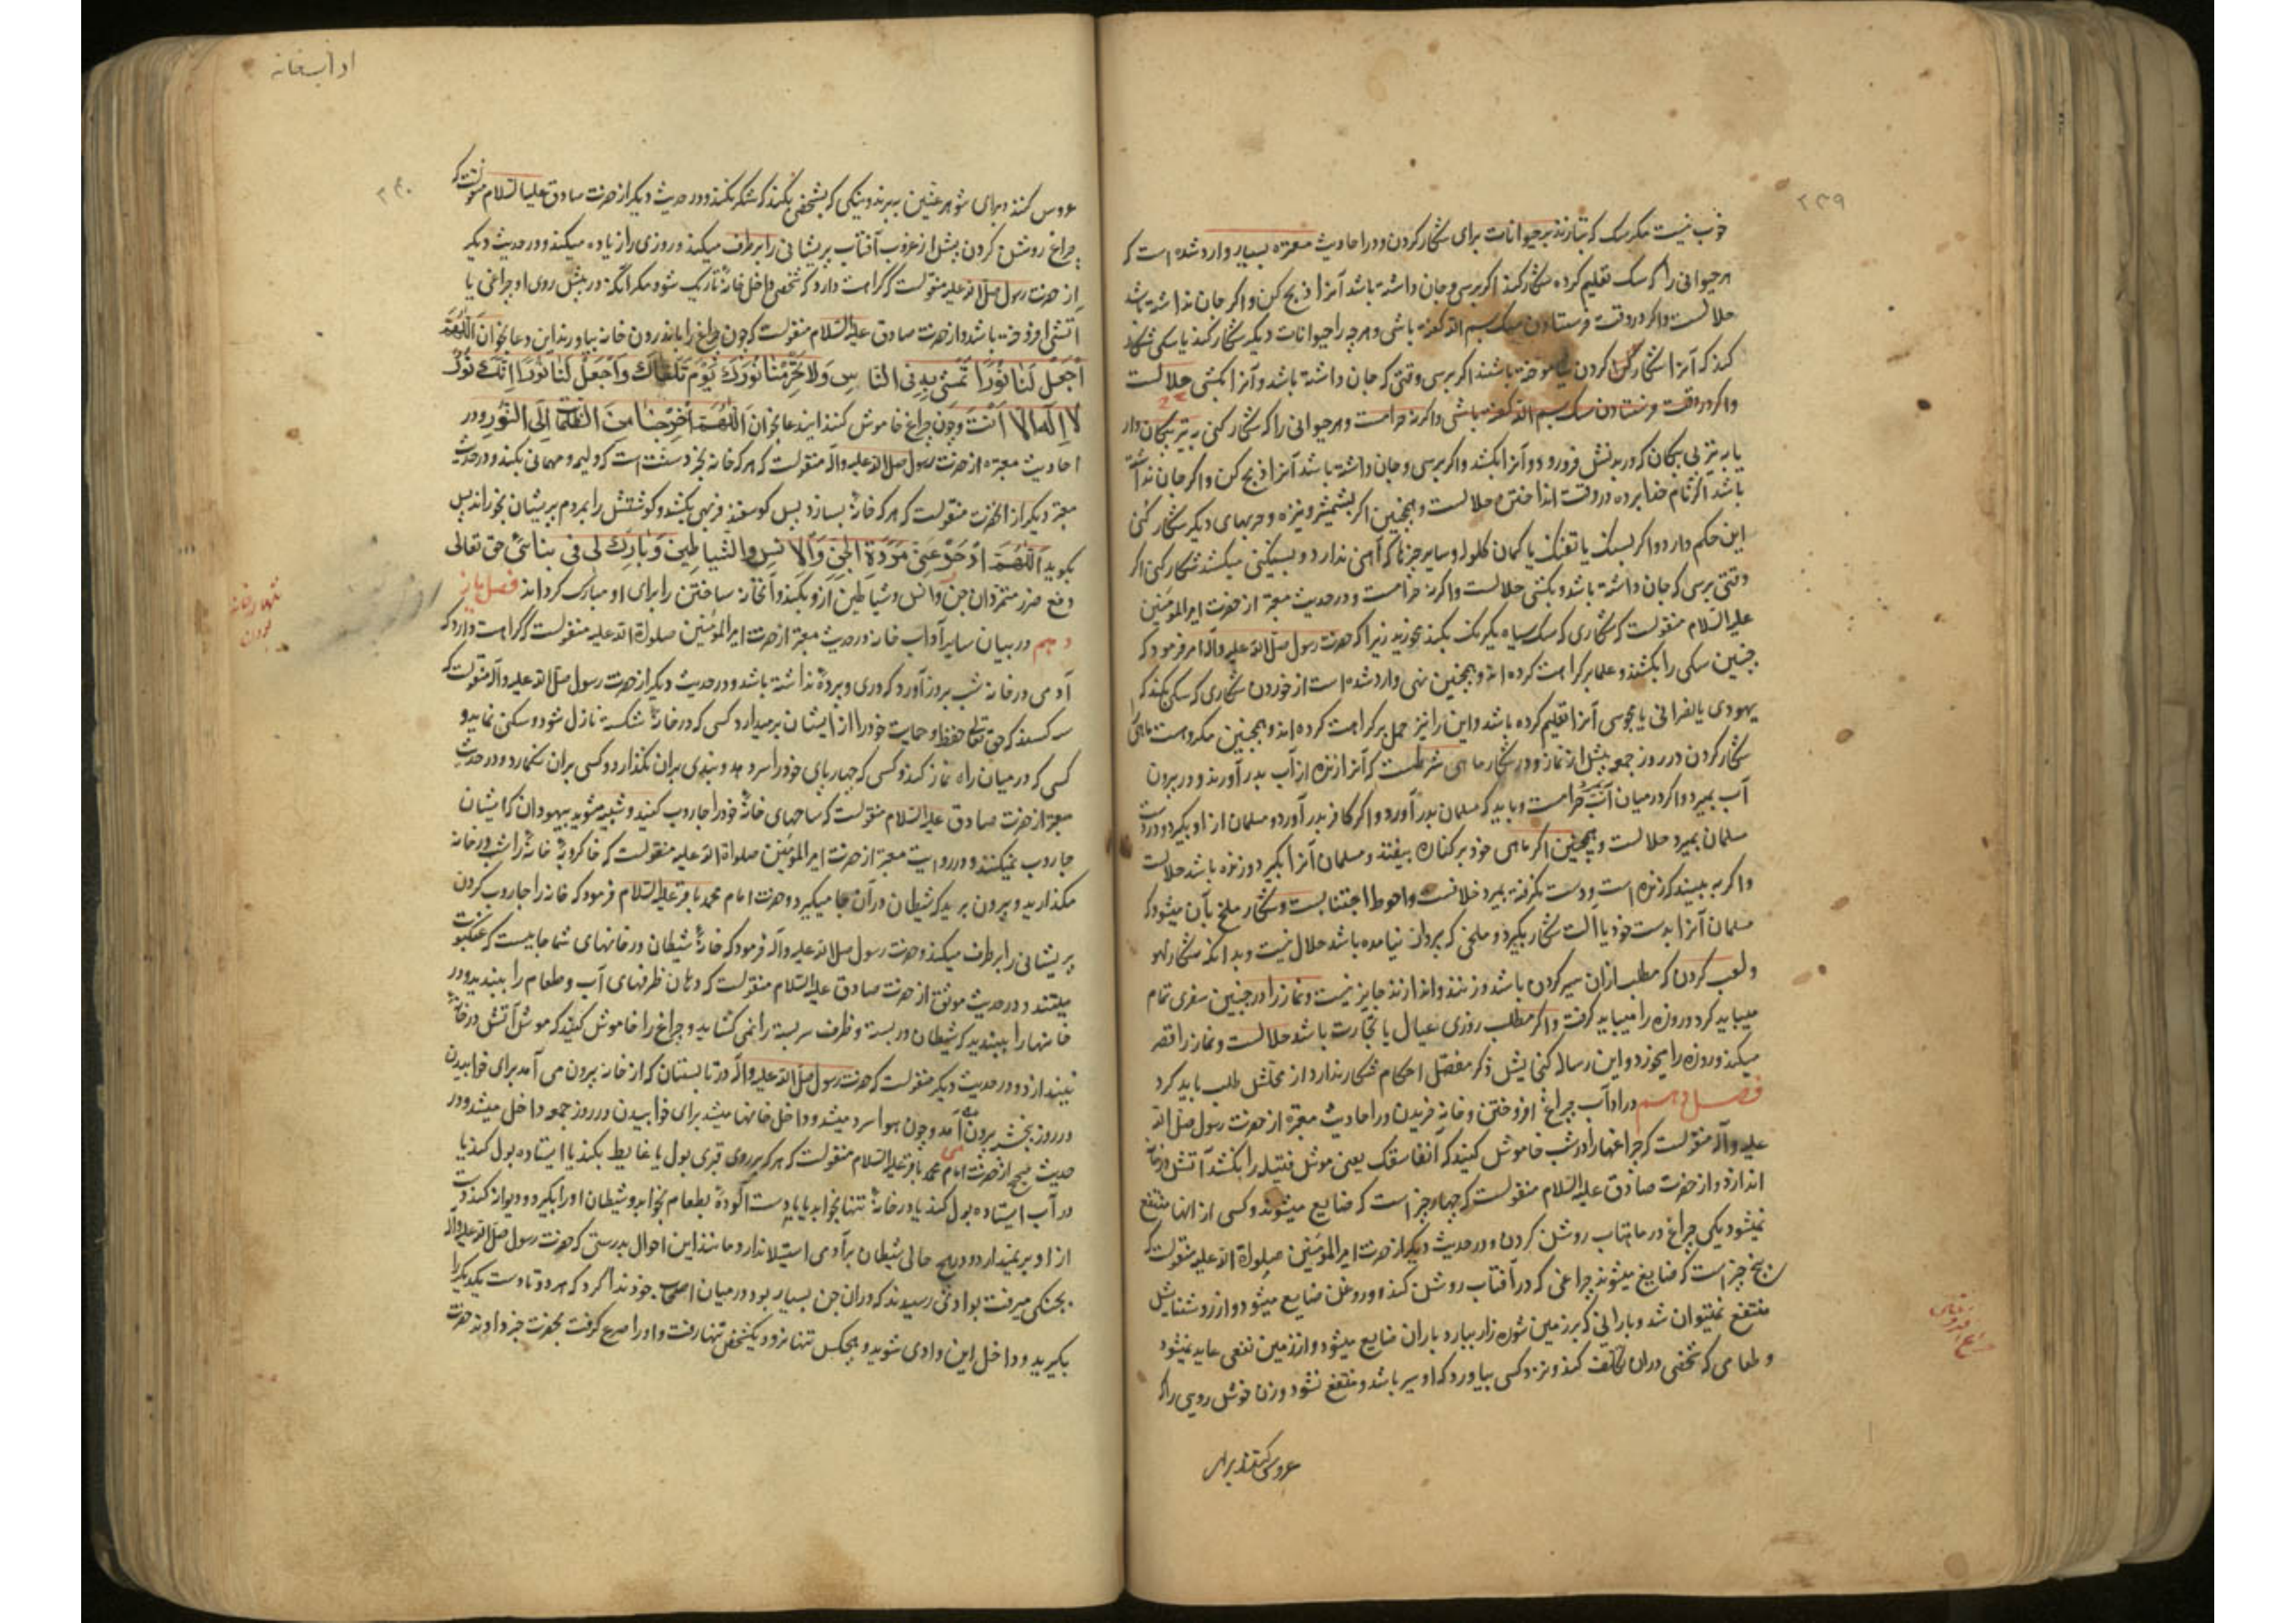 ۲۳۹
خوب نیست مکر سک که بتازند بر حیوانات برای شکار کردن و در احادیث معتبره بسیار وارد شده است که
هر حیوانی را که سک تعلیم کرده شکار کند اکر برسی و جان داشته باشد آنرا ذبح کن و اکر جان نداشته باشد
حلالست و اکر در وقت فرستادن سک بسم الله کفته باشی و هر چه را حیوانات دیکر شکار کند یا سکی شکار
کند که آنرا شکار کردن نیاموخته باشند اکر برسی وقتی که جان داشته باشد و آنرا بکشی حلالست
و اکر در وقت فرستادن سک بسم الله نکفته باشی و اکر نه حرامست و هر حیوانی را که شکار کنی به تیر پیکان دار
یا به تیر بی پیکان که در بدنش فرو رود و آنرا بکشد و اکر برسی و جان داشته باشد آنرا ذبح کن و اکر جان نداشته
باشد اکر نام خدا برده در وقت انداختن حلالست و همچنین اکر بشمشیر و نیزه و حربهای دیکر شکار کنی
این حکم دارد و اکر بسنک یا تفنک یا کمان کلوله و سایر چیزها که آهن ندارد و بسنکینی میکشد شکار کنی اکر
وقتی برسی که جان داشته باشد و بکشی حلالست و اکر نه حرامست و در حدیث معتبر از حضرت امیر المؤمنین
علیه السلام منقولست که شکاری که سک سیاه یکرنک بکند مخورید زیرا که حضرت رسول صلی الله علیه وآله امر فرمود که
چنین سکی را بکشند و علما بر کراهت کرده اند و همچنین نهی وارد شده است از خوردن شکاری که سکی بکند که
یهودی یا نصرانی یا مجوسی آنرا تعلیم کرده باشد و این را نیز حمل بر کراهت کرده اند و همچنین مکروهست ماهی
شکار کردن در روز جمعه پیش از نماز و در شکار ماهی شرطست که آنرا زنده از آب بدر آورند و در بیرون
آب بمیرد و اکر در میان آب بمیرد حرامست و باید که مسلمان بدر آورد و اکر کافر بدر آورد و مسلمان از او بکیرد و در دست
مسلمان بمیرد حلالست و همچنین اکر ماهی خود بر کناره بیفتد و مسلمان آنرا بکیرد و زنده باشد حلالست
و اکر به بیند که زنده است و دست نکرفته بمیرد خلافست و احوط اجتنابست و شکار ملخ بآن میشود که
مسلمان آنرا بدست خود یا آلت شکار بکیرد و ملخی که بپرواز نیامده باشد حلال نیست و بدانکه شکار لهو
و لعب کردن که مطلب ازان سیر کردن باشد و زنند و اندازند جایز نیست و نماز را در چنین سفری تمام
میباید کرد و روزه را میباید کرفت و اکر مطلب روزی عیال یا تجارت باشد حلالست و نماز را قصر
میکند و روزه را میخورد و این رساله کنجایش ذکر مفصل احکام شکار ندارد از محلش طلب باید کرد
فصل نهم در اداب چراغ افروختن و خانه خریدن در احادیث معتبره از حضرت رسول صلی الله
علیه وآله منقولست که چراغها را در شب خاموش کنید که انفاسقک یعنی موش فتیله را بکشد آتش در خانه
اندازد و از حضرت صادق علیه السلام منقولست که چهار چیز است که ضایع میشوند و کسی از انها منتفع
نمیشود یکی چراغ در ماهتاب روشن کردن و در حدیث دیکر از حضرت امیر المؤمنین صلواة الله علیه منقولست که
پنج چیز است که ضایع میشوند چراغی که در آفتاب روشن کنند و روغن ضایع میشود و از روشنایش
منتفع نمیتوان شد و بارانی که بر زمین شوره زار ببارد باران ضایع میشود و از زمین نفعی عاید نمیشود
و طعامی که شخصی دران تکلف کند و نزد کسی بیاورد که او سیر باشد و منتفع نشود و زن خوش رویی را که
عروس کنند برای
چراغ افروختن
اداب خانه
۲۴۰
عروس کنند و برای شوهر عنین به برند و نیکی که بشخصی بکنند که شکر نکند و در حدیث دیکر از حضرت صادق علیه السلام منقولست که
چراغ روشن کردن پیش از غروب آفتاب پریشانی را برطرف میکند و روزی را زیاده میکند و در حدیث دیکر
از حضرت رسول صلی الله علیه منقولست که کراهت دارد که شخصی داخل خانهٔ تاریک شود مکر آنکه در پیش روی او چراغی یا
آتشی افروخته باشد و از حضرت صادق علیه السلام منقولست که چون چراغ را باندرون خانه بیاورند این دعا بخوان اَللّهُمَّ
اجْعَلْ لَنا نُورًا نَمْشي بِهِ فِي النّاسِ وَلا تَحْرِمْنا نُورَكَ يَوْمَ نَلْقاكَ وَاجْعَلْ لَنا نُورًا اِنَّكَ نُورٌ
لا اِلهَ اِلّا اَنْتَ و چون چراغ خاموش کنند ایندعا بخوان اَللّهُمَّ اَخْرِجْنا مِنَ الظُّلُماتِ اِلَى النُّورِ و در
احادیث معتبره از حضرت رسول صلی الله علیه وآله منقولست که هر که خانه بخرد سنتست که ولیمه و مهمانی بکند و در حدیث
معتبر دیکر از انحضرت منقولست که هر که خانهٔ بسازد پس کوسفند فربهی بکشد و کوشتش را بمردم پریشان بخوراند پس
بکوید اَللّهُمَّ ادْحَرْ عَنّي مَرَدَةَ الْجِنِّ وَالْاِنْسِ وَالشَّياطينَ وَبارِكْ لي في بِنائي حق تعالی
دفع ضرر متمردان جن و انس و شیاطین از و بکند و آنخانه ساختن را برای او مبارک کرداند فصل یاز
دهم در بیان سایر آداب خانه در حدیث معتبر از حضرت امیر المؤمنین صلواة الله علیه منقولست که کراهت دارد که
آدمی در خانه شب بروز آورد که دری و پردهٔ نداشته باشد و در حدیث دیکر از حضرت رسول صلی الله علیه وآله منقولست که
سه کسند که حق تعالی حفظ و حمایت خود را از ایشان برمیدارد کسی که در خانهٔ شکسته نازل شود و سکنی نماید و
کسی که در میان راه نماز کند و کسی که چهارپای خود را سر دهد و بندی بران نکذارد و کسی بران نکمارد و در حدیث
معتبر از حضرت صادق علیه السلام منقولست که ساحتهای خانهٔ خود را جاروب کنید و شبیه مشوید بیهودان که ایشان
جاروب نمیکنند و در روایت معتبر از حضرت امیر المؤمنین صلواة الله علیه منقولست که خاکروبهٔ خانه را شب در خانه
مکذارید و بیرون برید که شیطان در آن جا میکیرد و حضرت امام محمد باقر علیه السلام فرمود که خانه را جاروب کردن
پریشانی را برطرف میکند و حضرت رسول صلی الله علیه وآله فرمود که خانهٔ شیطان در خانهای شما جاییست که عنکبوت
میتند و در حدیث موثق از حضرت صادق علیه السلام منقولست که دهان ظرفهای آب و طعام را ببندید و در
خانها را ببندید که شیطان در بسته و ظرف سر بسته را نمی کشاید و چراغ را خاموش کنید که موش آتش در خانه
نیندازد و در حدیث دیکر منقولست که حضرت رسول صلی الله علیه وآله در تابستان که از خانه بیرون می آمد برای خوابیدن
در روز پنجشنبه بیرون می آمد و چون هوا سرد میشد و داخل خانها میشد برای خوابیدن در روز جمعه داخل میشد و در
حدیث صحیح از حضرت امام محمد باقر علیه السلام منقولست که هر که بر روی قبری بول یا غایط بکند یا ایستاده بول کند یا
در آب ایستاده بول کند یا در خانهٔ تنها بخوابد یا با دست آلودهٔ بطعام بخوابد و شیطان او را بکیرد و دیوانه کند دست
از او بر نمیدارد و در هیچ حالی شیطان بر آدمی استیلا ندارد مانند این احوال بدرستی که حضرت رسول صلی الله علیه وآله
بجنکی میرفت بوادئی رسیدند که دران جن بسیار بود در میان اصحاب خود ندا کرد که هر دو تا دست یکدیکر را
بکیرید و داخل این وادی شوید و هیچکس تنها نرود یکشخص تنها رفت و او را صرع کرفت بحضرت خبر دادند حضرت